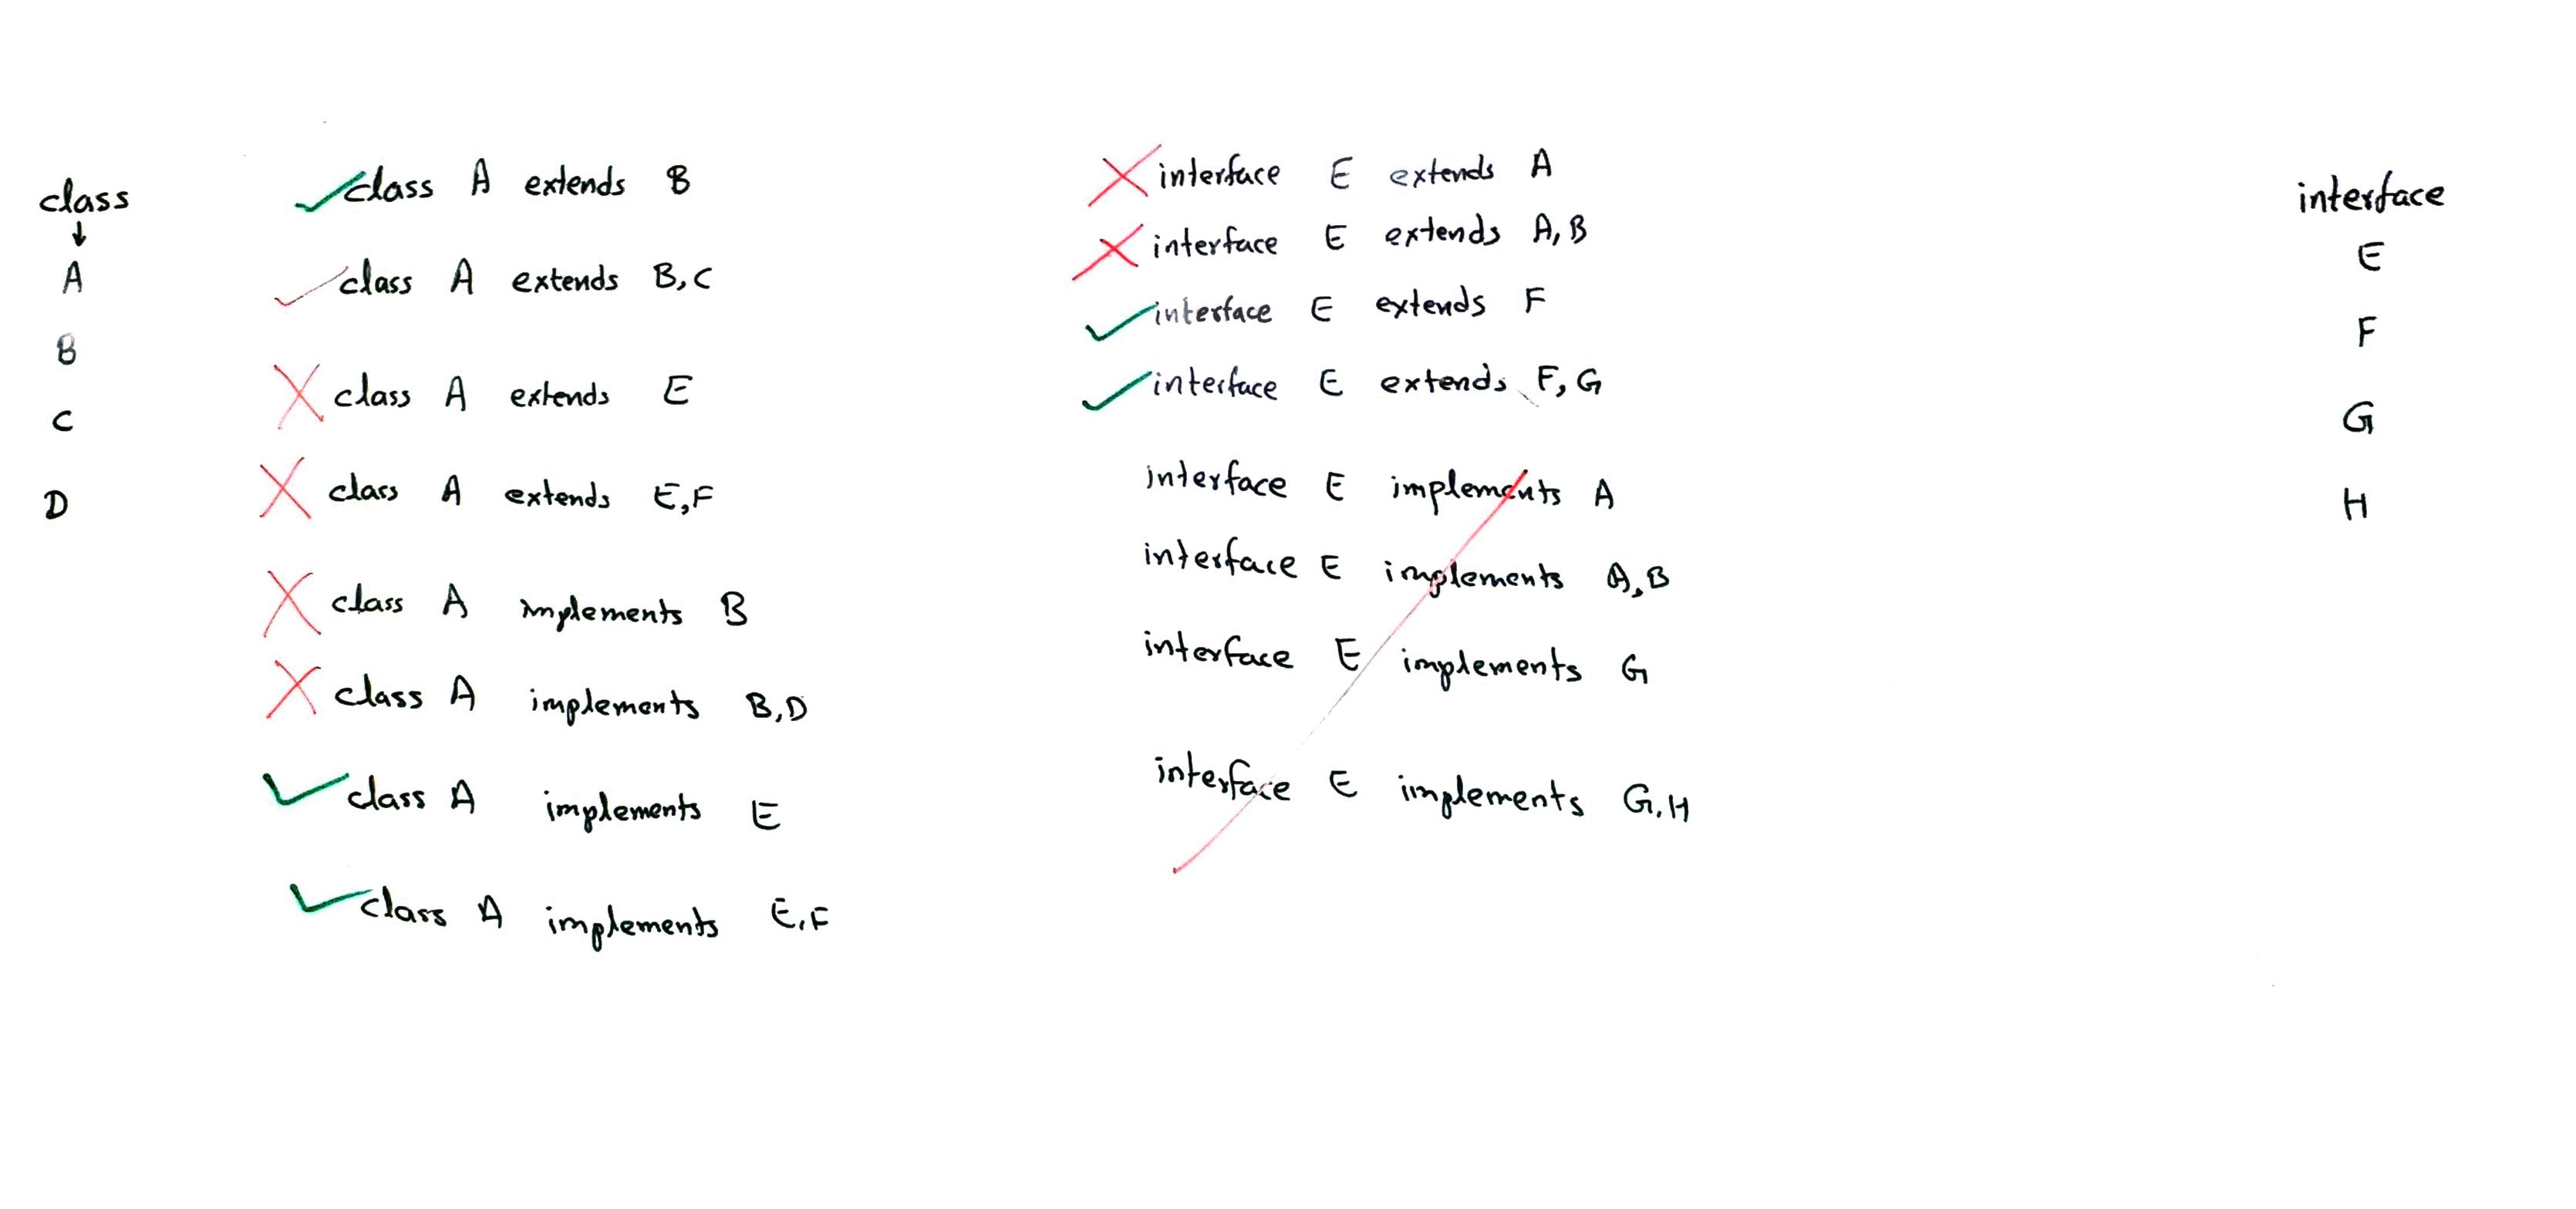 class
A
B
C
D
class A extends B
class A extends B,C
class A extends E
class A extends E,F
class A implements B
class A implements B,D
class A implements E
class A implements E,F
interface E extends A
interface E extends A,B
interface E extends F
interface E extends F,G
interface E implements A
interface E implements A,B
interface E implements G
interface E implements G,H
interface
E
F
G
H